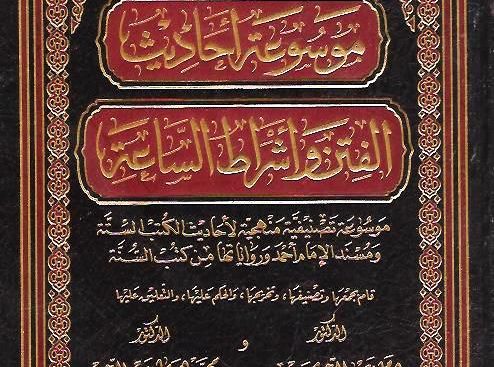 موسوعة أحاديث
الفتن وأشراط الساعة
موسوعة تصنيفية منهجية لأحاديث الكتب الستة
ومسند الإمام أحمد ورواياتها من كتب السنة
قام بجمعها وتصنيفها، وتخريجها، والحكم عليها، والتعليق عليها
الدكتور الدكتور
و